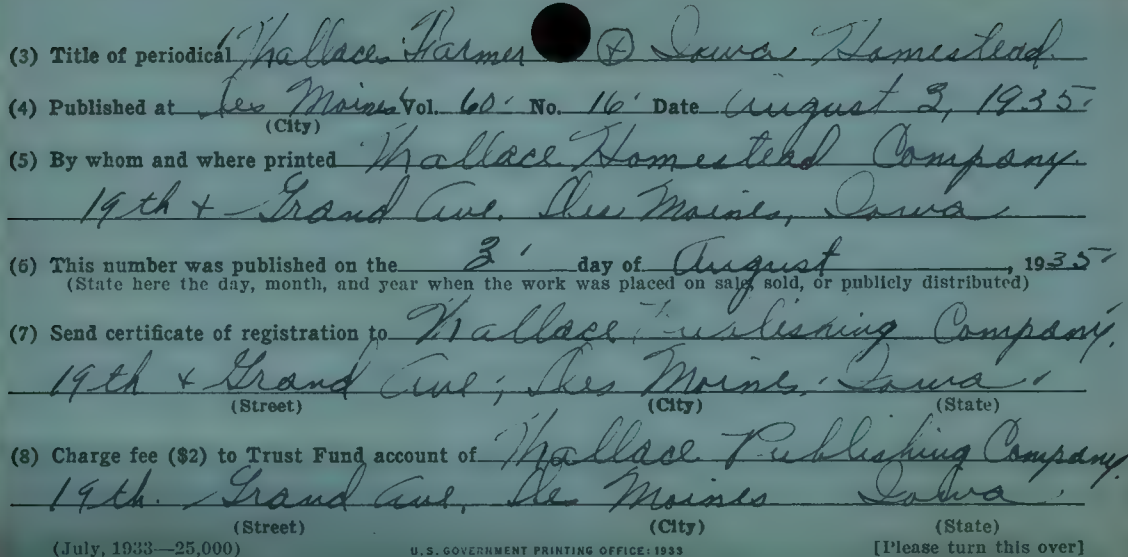 (3) Title of periodical Wallaces Farmer & Iowa Homestead.
(4) Published at Des Moines Vol. 60 No. 16 Date August 3, 1935
(City)
(5) By whom and where printed Wallace Homestead Company.
19th + Grand Ave. Des Moines, Iowa
(6) This number was published on the 3 day of August, 1935
(State here the day, month, and year when the work was placed on sale, sold, or publicly distributed)
(7) Send certificate of registration to Wallace Publishing Company.
19th + Grand Ave, Des Moines, Iowa
(Street) (City) (State)
(8) Charge fee ($2) to Trust Fund account of Wallace Publishing Company.
19th. Grand Ave, Des Moines Iowa
(Street) (City) (State)
(July, 1933—25,000) U.S. GOVERNMENT PRINTING OFFICE: 1933 [Please turn this over]